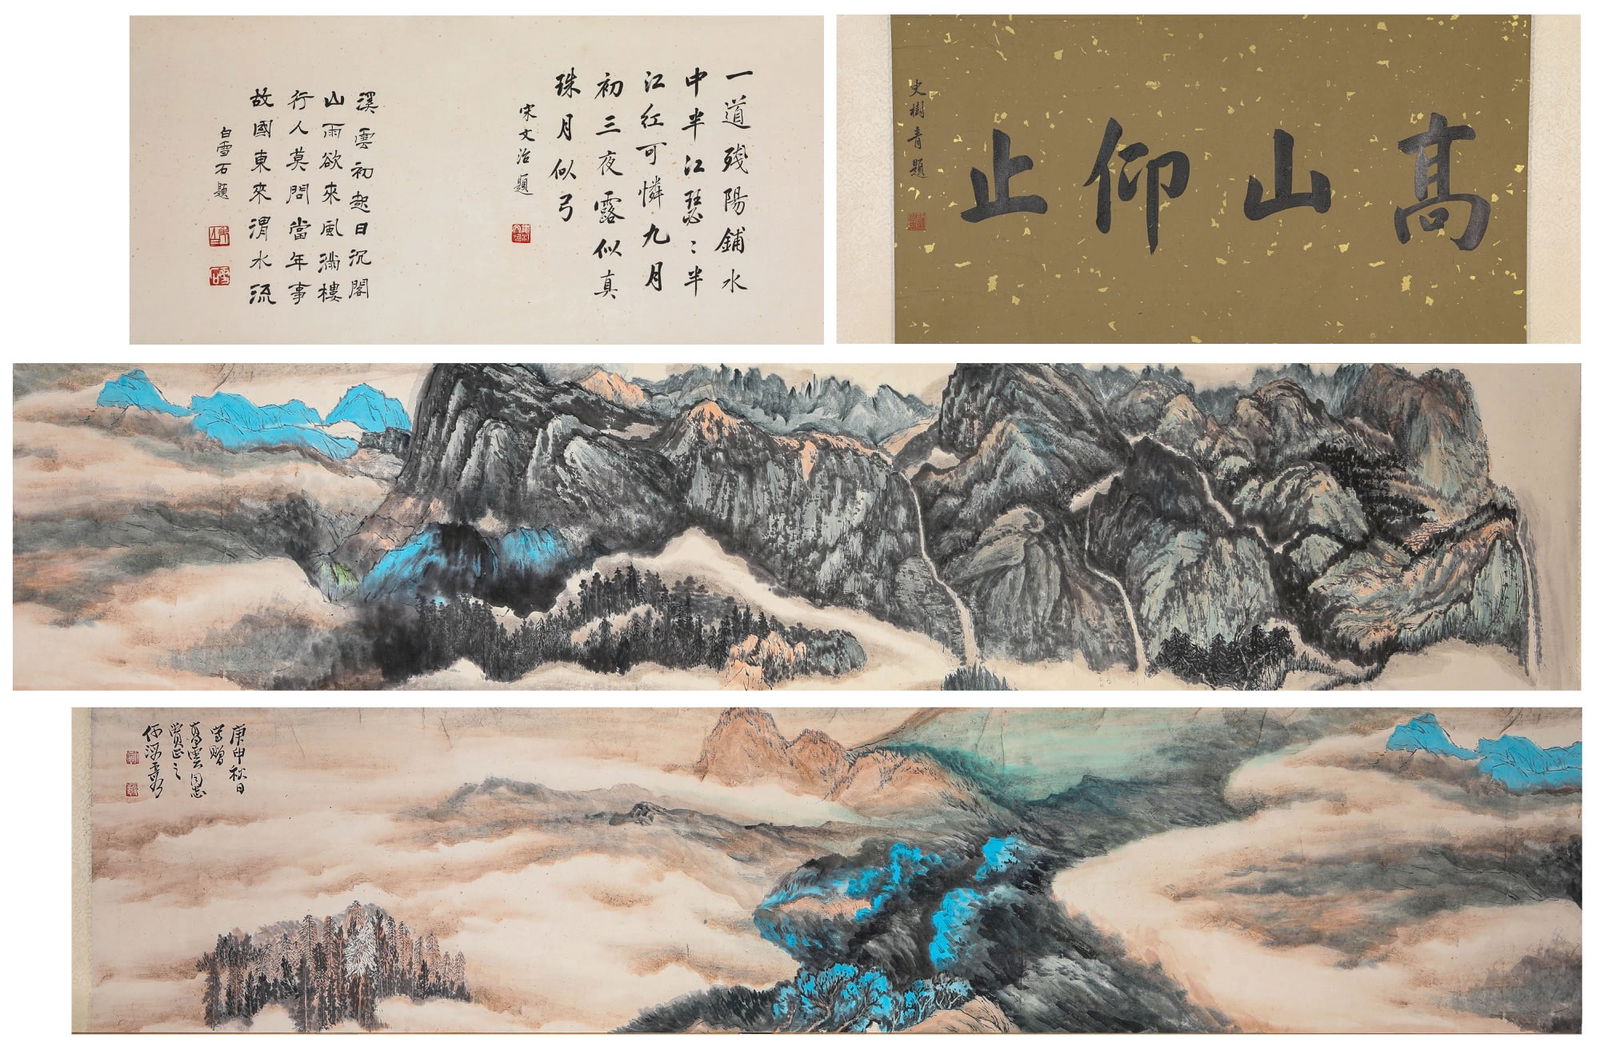 高山仰止
史樹青題
一道殘陽鋪水
中半江瑟〻半
江紅可憐九月
初三夜露似真
珠月似弓
宋文治題
溪雲初起日沉閣
山雨欲來風滿樓
行人莫問當年事
故國東來渭水流
白雪石題
庚申秋日
寫贈
雲同志
賞正之
何海霞